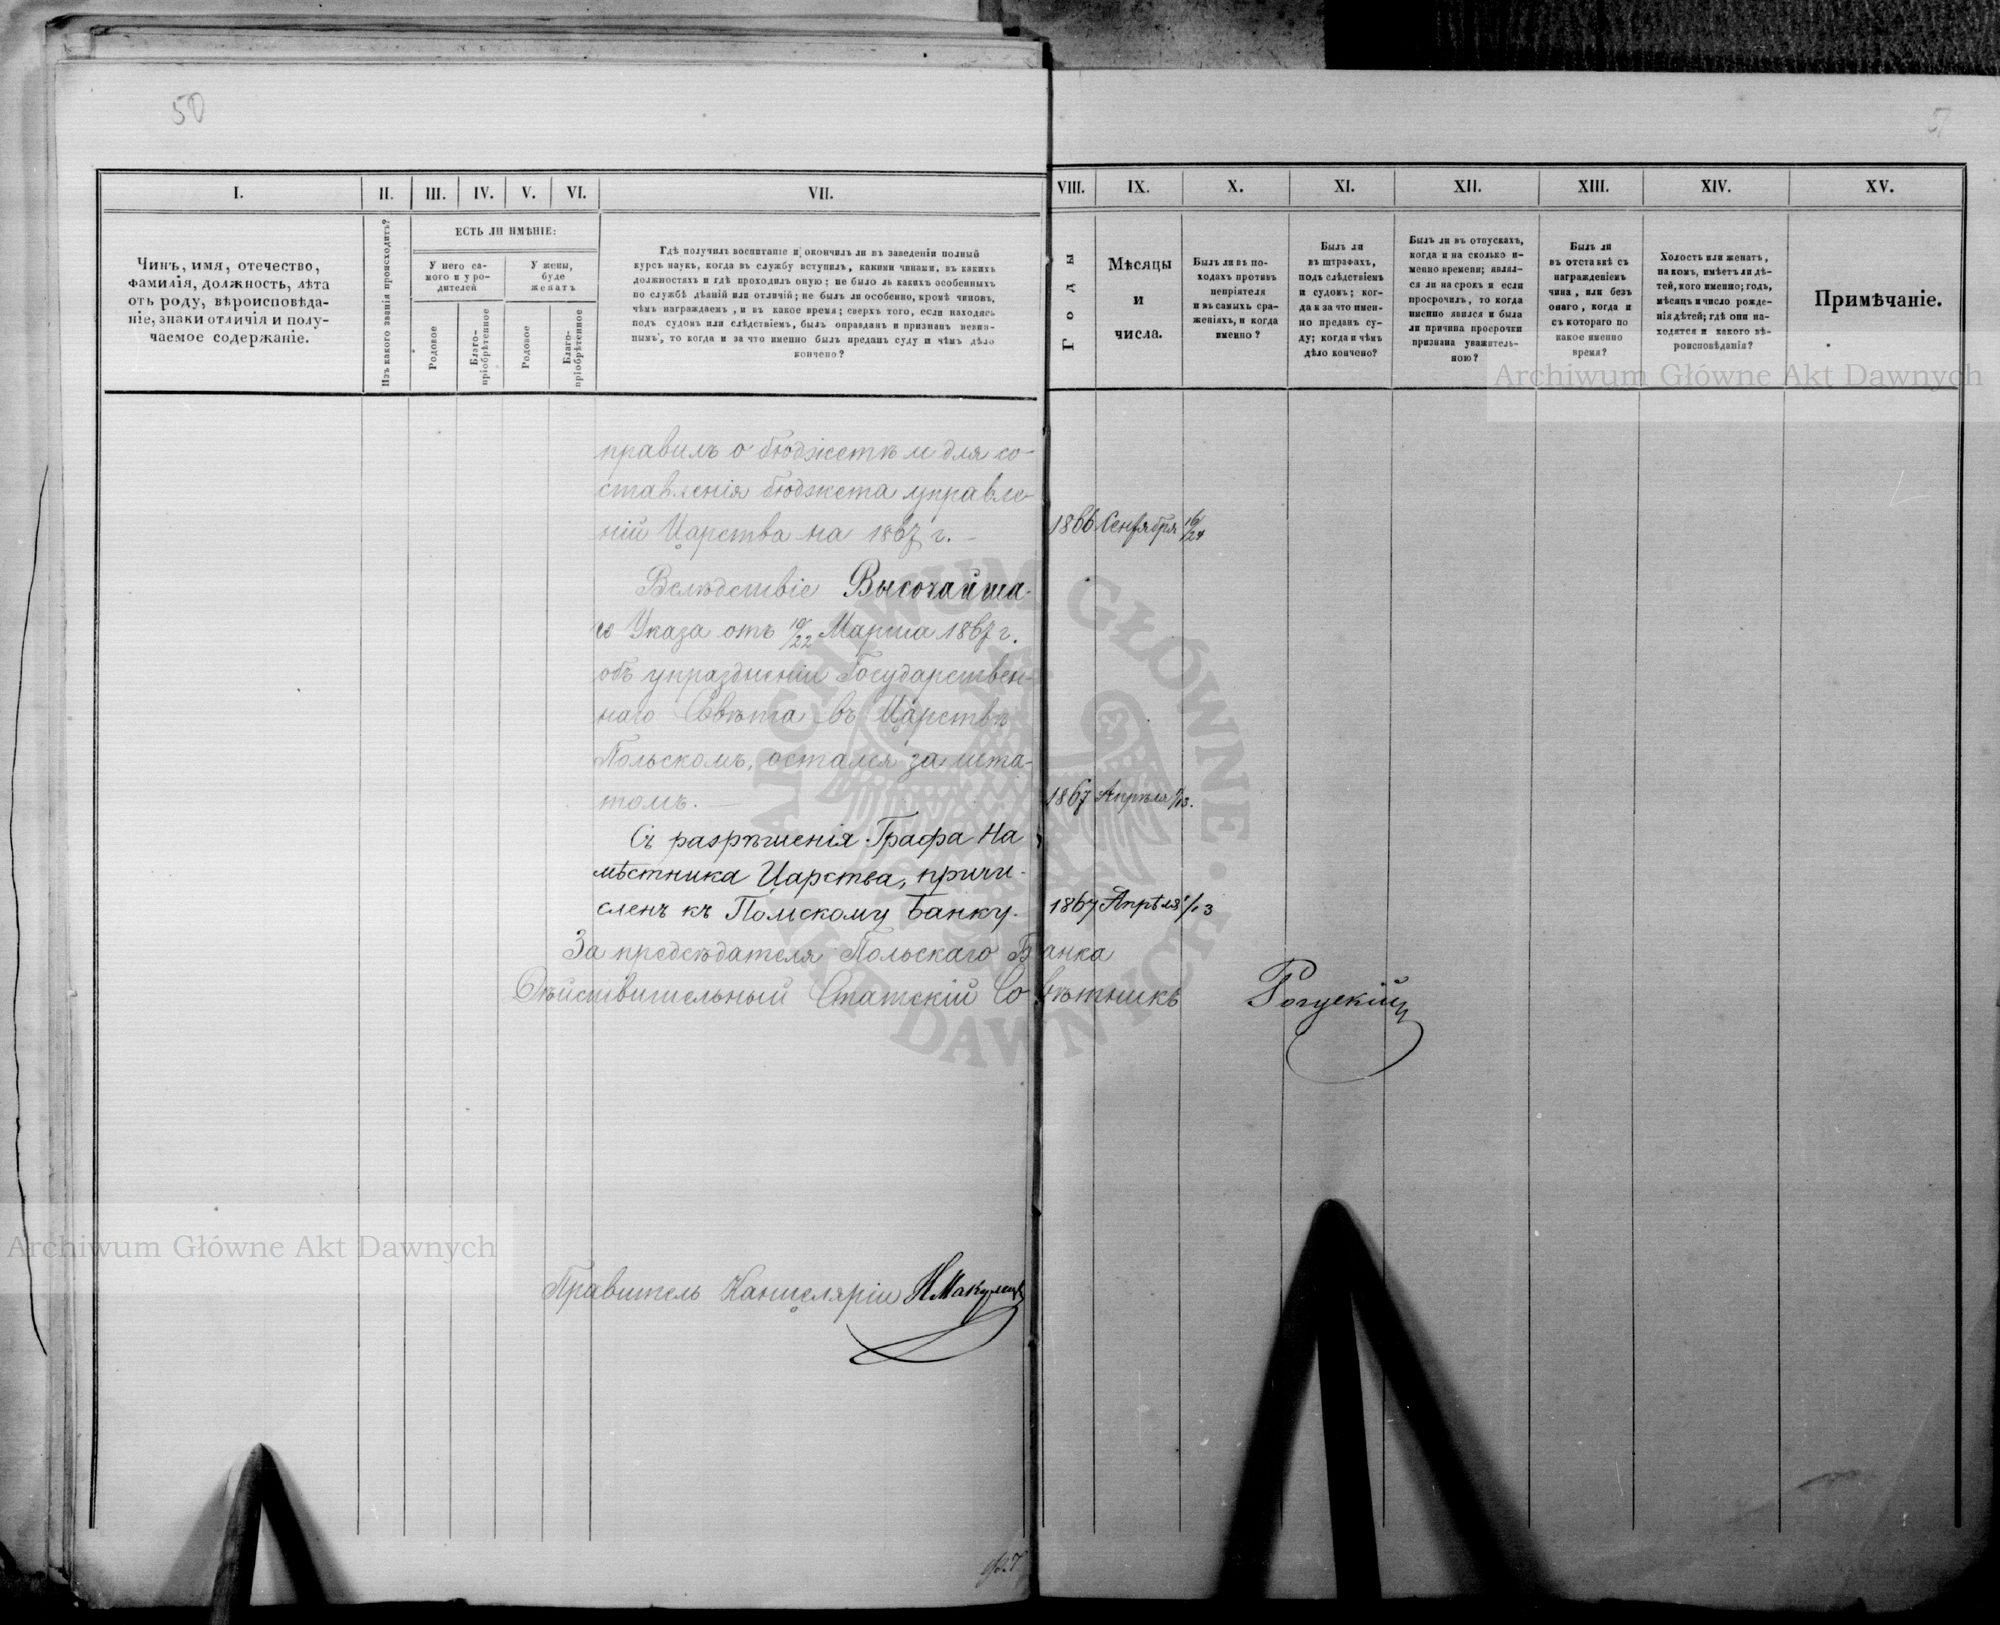 50
I.
II.
III.
IV.
V.
VI.
VII.
VIII.
IX.
X.
XI.
XII.
XIII.
XIV.
XV.
Чинъ, имя, отечество,
фамилія, должность, лѣта
отъ роду, вѣроисповѣда-
ніе, знаки отличія и полу-
чаемое содержаніе.
Изъ какого званія происходитъ?
ЕСТЬ ЛИ ИМѢНІЕ:
У него са-
мого и у ро-
дителей
У жены,
буде
женатъ
Родовое
Благо-
пріобрѣтенное
Родовое
Благо-
пріобрѣтенное
Гдѣ получилъ воспитаніе и окончилъ ли въ заведеніи полный
курсъ наукъ, когда въ службу вступилъ, какими чинами, въ какихъ
должностяхъ и гдѣ проходилъ оную; не было ль какихъ особенныхъ
по службѣ дѣяній или отличій; не былъ ли особенно, кромѣ чиновъ,
чѣмъ награждаемъ, и въ какое время; сверхъ того, если находясь
подъ судомъ или слѣдствіемъ, былъ оправданъ и признанъ невин-
нымъ, то когда и за что именно былъ преданъ суду и чѣмъ дѣло
кончено?
Годы
Мѣсяцы
и
числа.
Былъ ли въ по-
ходахъ противъ
непріятеля
и въ самыхъ сра-
женіяхъ, и когда
именно?
Былъ ли
въ штрафахъ,
подъ слѣдствіемъ
и судомъ; ког-
да и за что имен-
но преданъ су-
ду; когда и чѣмъ
дѣло кончено?
Былъ ли въ отпускахъ,
когда и на сколько и-
менно времени; являл-
ся ли на срокъ и если
просрочилъ, то когда
именно явился и была
ли причина просрочки
признана уважитель-
ною?
Былъ ли
въ отставкѣ съ
награжденіемъ
чина, или безъ
онаго, когда и
съ котораго по
какое именно
время?
Холостъ или женатъ,
на комъ, имѣетъ ли дѣ-
тей, кого именно; годъ,
мѣсяцъ и число рожде-
нія дѣтей; гдѣ они на-
ходятся и какого вѣ-
роисповѣданія?
Примѣчаніе.
Archiwum Główne Akt Dawnych
правилъ о бюджетѣ и для со-
ставленія бюджета управле-
ній Царства на 1867 г. —
1866 Сентября
Вслѣдствіе Высочайша-
го Указа отъ 10/22 Марта 1867 г.
объ упраздненіи Государствен-
наго Совѣта въ Царствѣ
Польскомъ, остался за шта-
томъ. —
1867 Апрѣля 1/13.
Съ разрѣшенія Графа На
мѣстника Царства, причи-
сленъ къ Польскому Банку.
1867 Апрѣля 1/13
За предсѣдателя Польскаго Банка
Дѣйствительный Статскій Совѣтникъ Рогускій
ARCHIWUM GŁÓWNE AKT DAWNYCH
Archiwum Główne Akt Dawnych
Правитель Канцеляріи